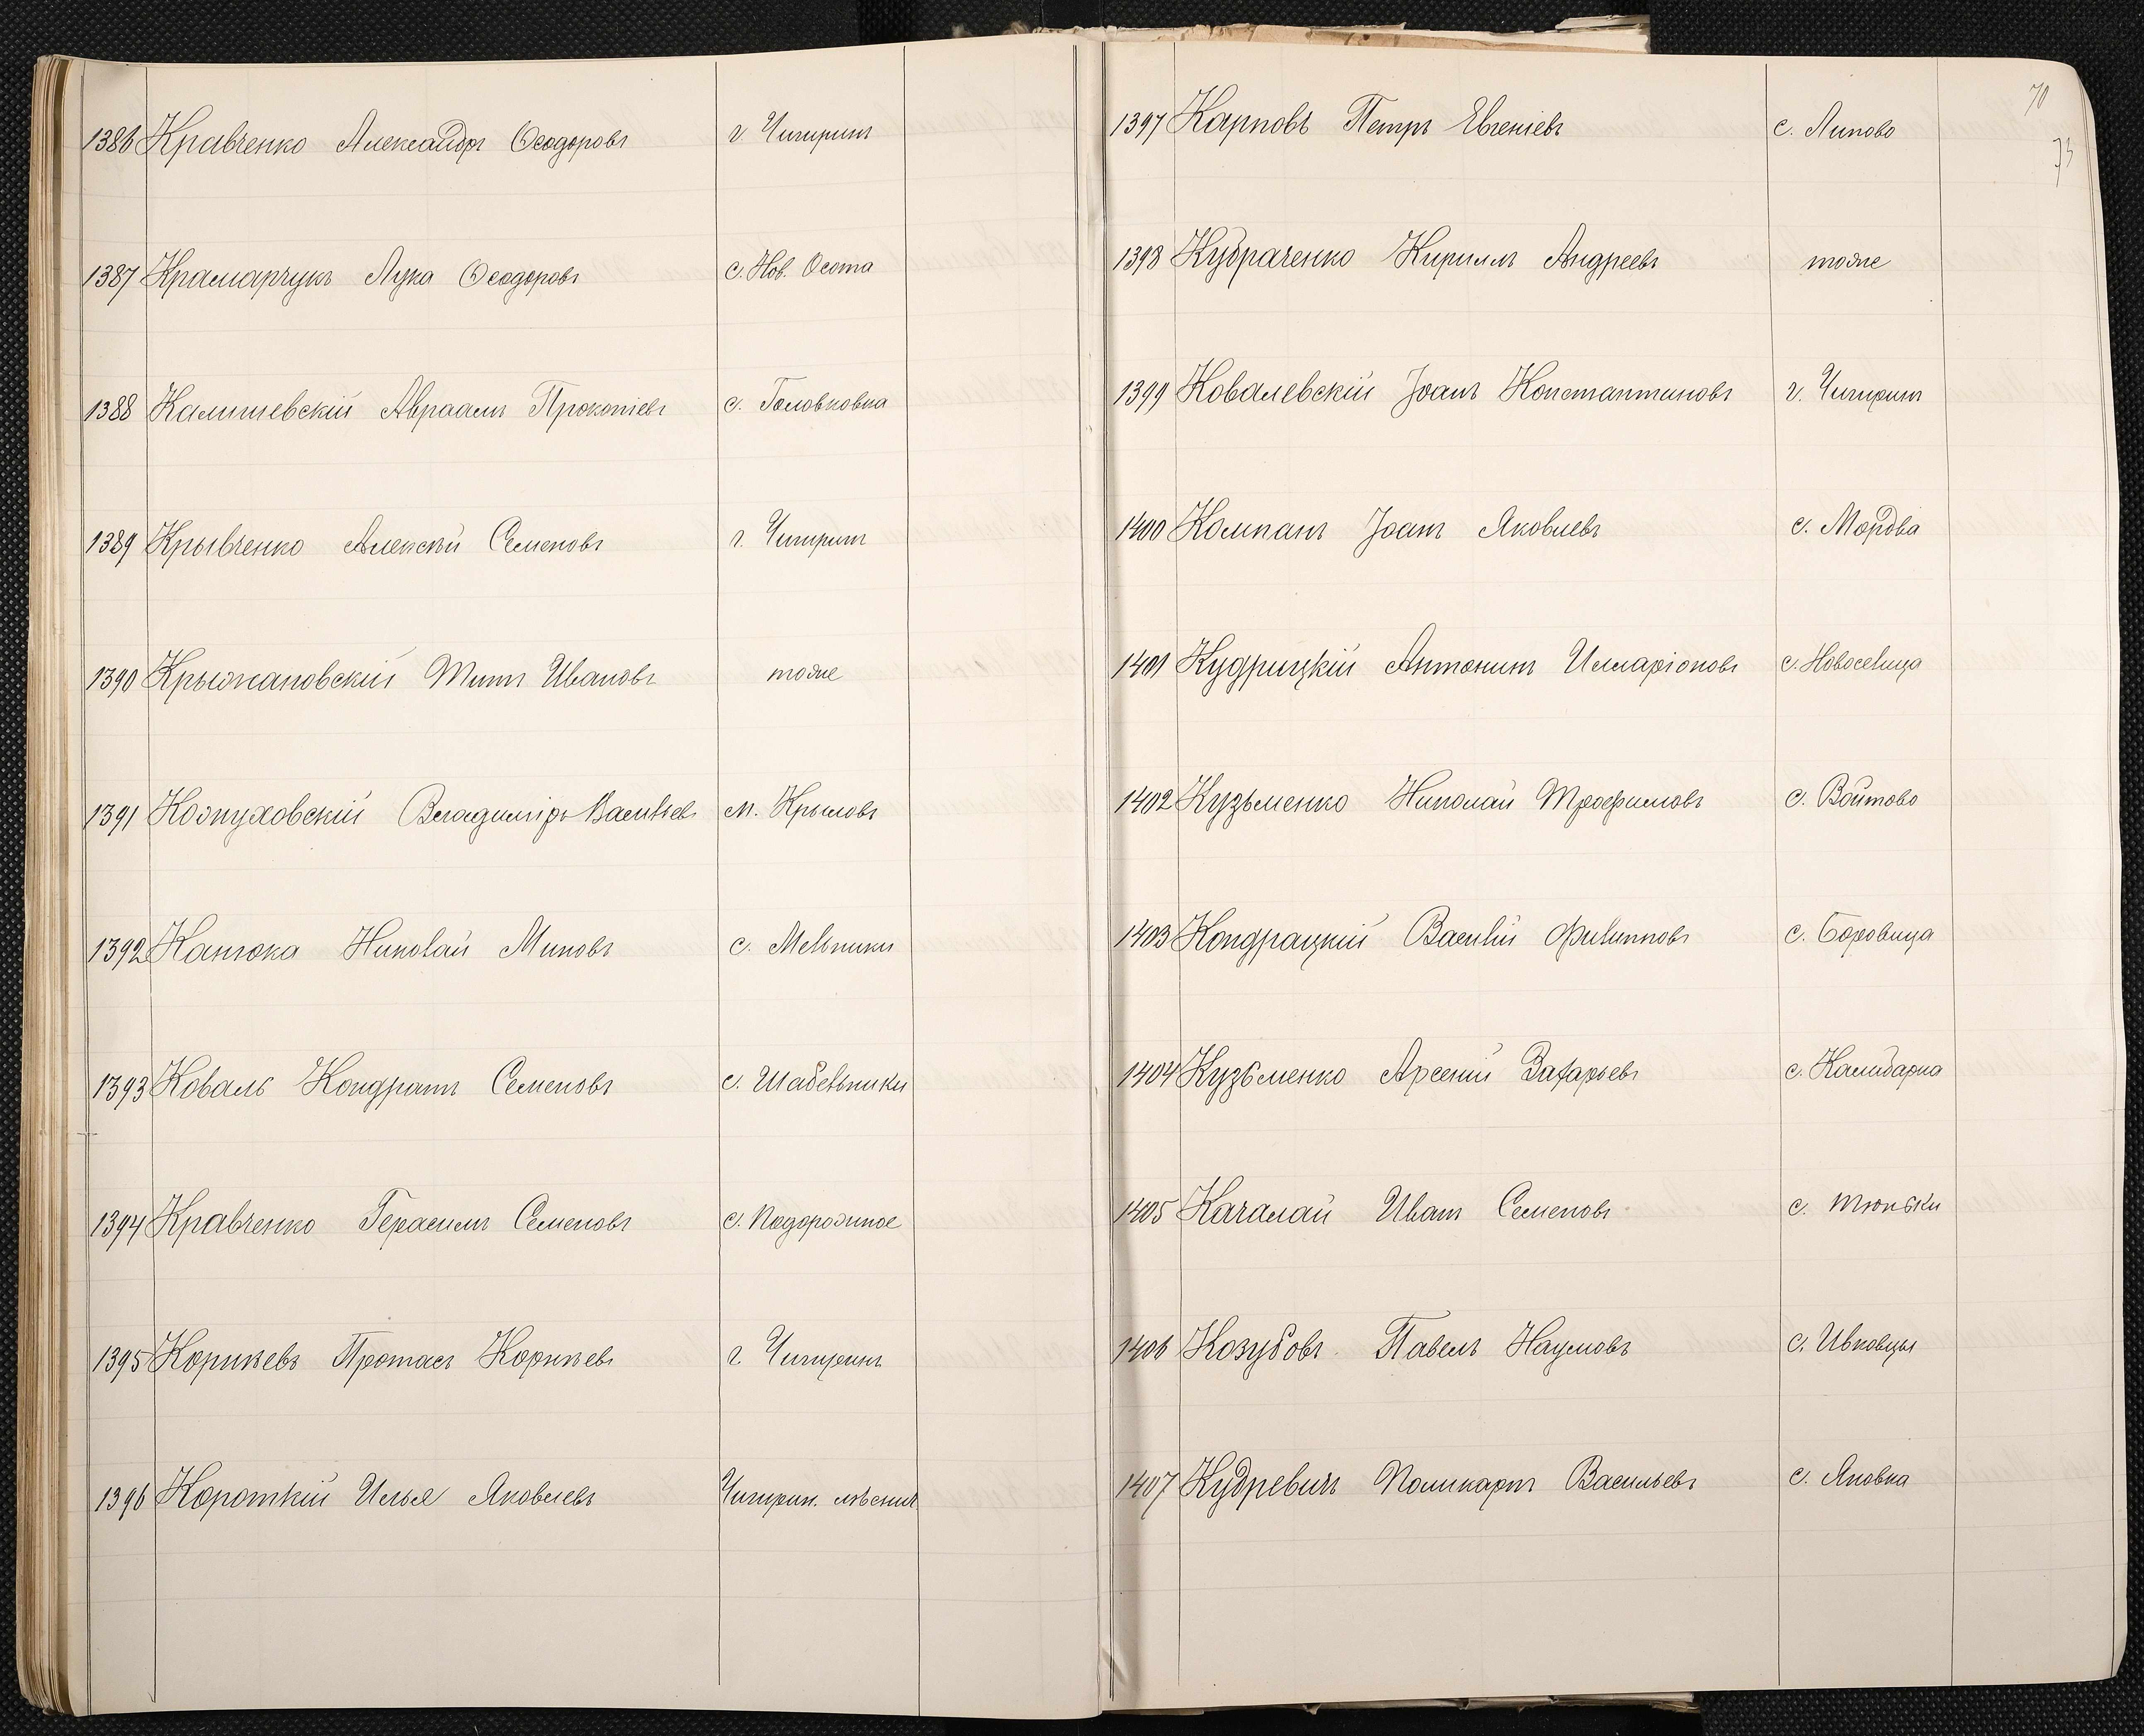 1386 Кравченко Александръ Ѳеодоровъ г. Чигиринъ
1387 Крамарчукъ Лука Ѳеодоровъ с. Нов. Осота
1388 Калишевскій Авраамъ Прокопіевъ с. Головковка
1389 Крывченко Алексѣй Семеновъ г. Чигиринъ
1390 Крыжановскій Титъ Ивановъ тоже
1391 Кожуховскій Владиміръ Васильев. м. Крыловъ
1392 Канюка Николай Миновъ с. Мельники
1393 Коваль Кондратъ Семеновъ с. Шабельники
1394 Кравченко Герасимъ Семеновъ с. Подорожное
1395 Корнѣевъ Протасъ Корнѣевъ г. Чигиринъ
1396 Короткій Илья Яковлевъ Чигирин. лѣснич.
70
73
1397 Карповъ Петръ Евгеніевъ с. Липово
1398 Кубраченко Кириллъ Андреевъ тоже
1399 Ковалевскій Іоанъ Константиновъ г. Чигиринъ
1400 Компанъ Іоанъ Яковлевъ с. Мордва
1401 Кудрицкій Антонинъ Илларіоновъ с. Новоселица
1402 Кузьменко Николай Трофимовъ с. Войтово
1403 Кондрацкій Василій Филипповъ с. Боровица
1404 Кузьменко Арсеній Захарьевъ с. Калиберна
1405 Качалай Иванъ Семеновъ с. Тюньки
1406 Козубовъ Павелъ Наумовъ с. Ивковцы
1407 Кудревичъ Поликарпъ Васильевъ с. Яновка